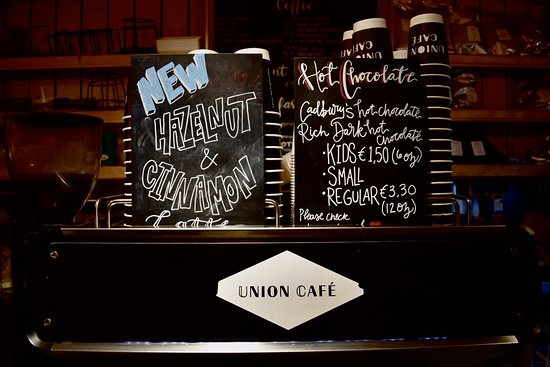 NEW
HAZELNUT
&
CINNAMON
Latte
Hot Chocolate
Cadbury's hot chocolate
Rich Dark hot
chocolate
• KIDS €1,50 (6oz)
• SMALL
• REGULAR €3,30
(12oz)
Please check
UNION CAFÉ
UNION
CAFÉ
UNION CAFÉ
Coffee